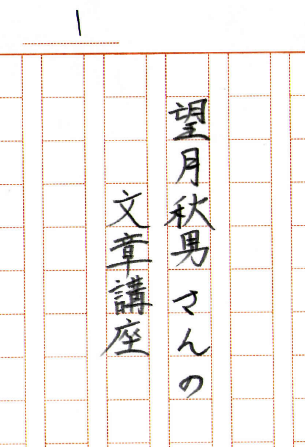 1
望月秋男さんの
文章講座